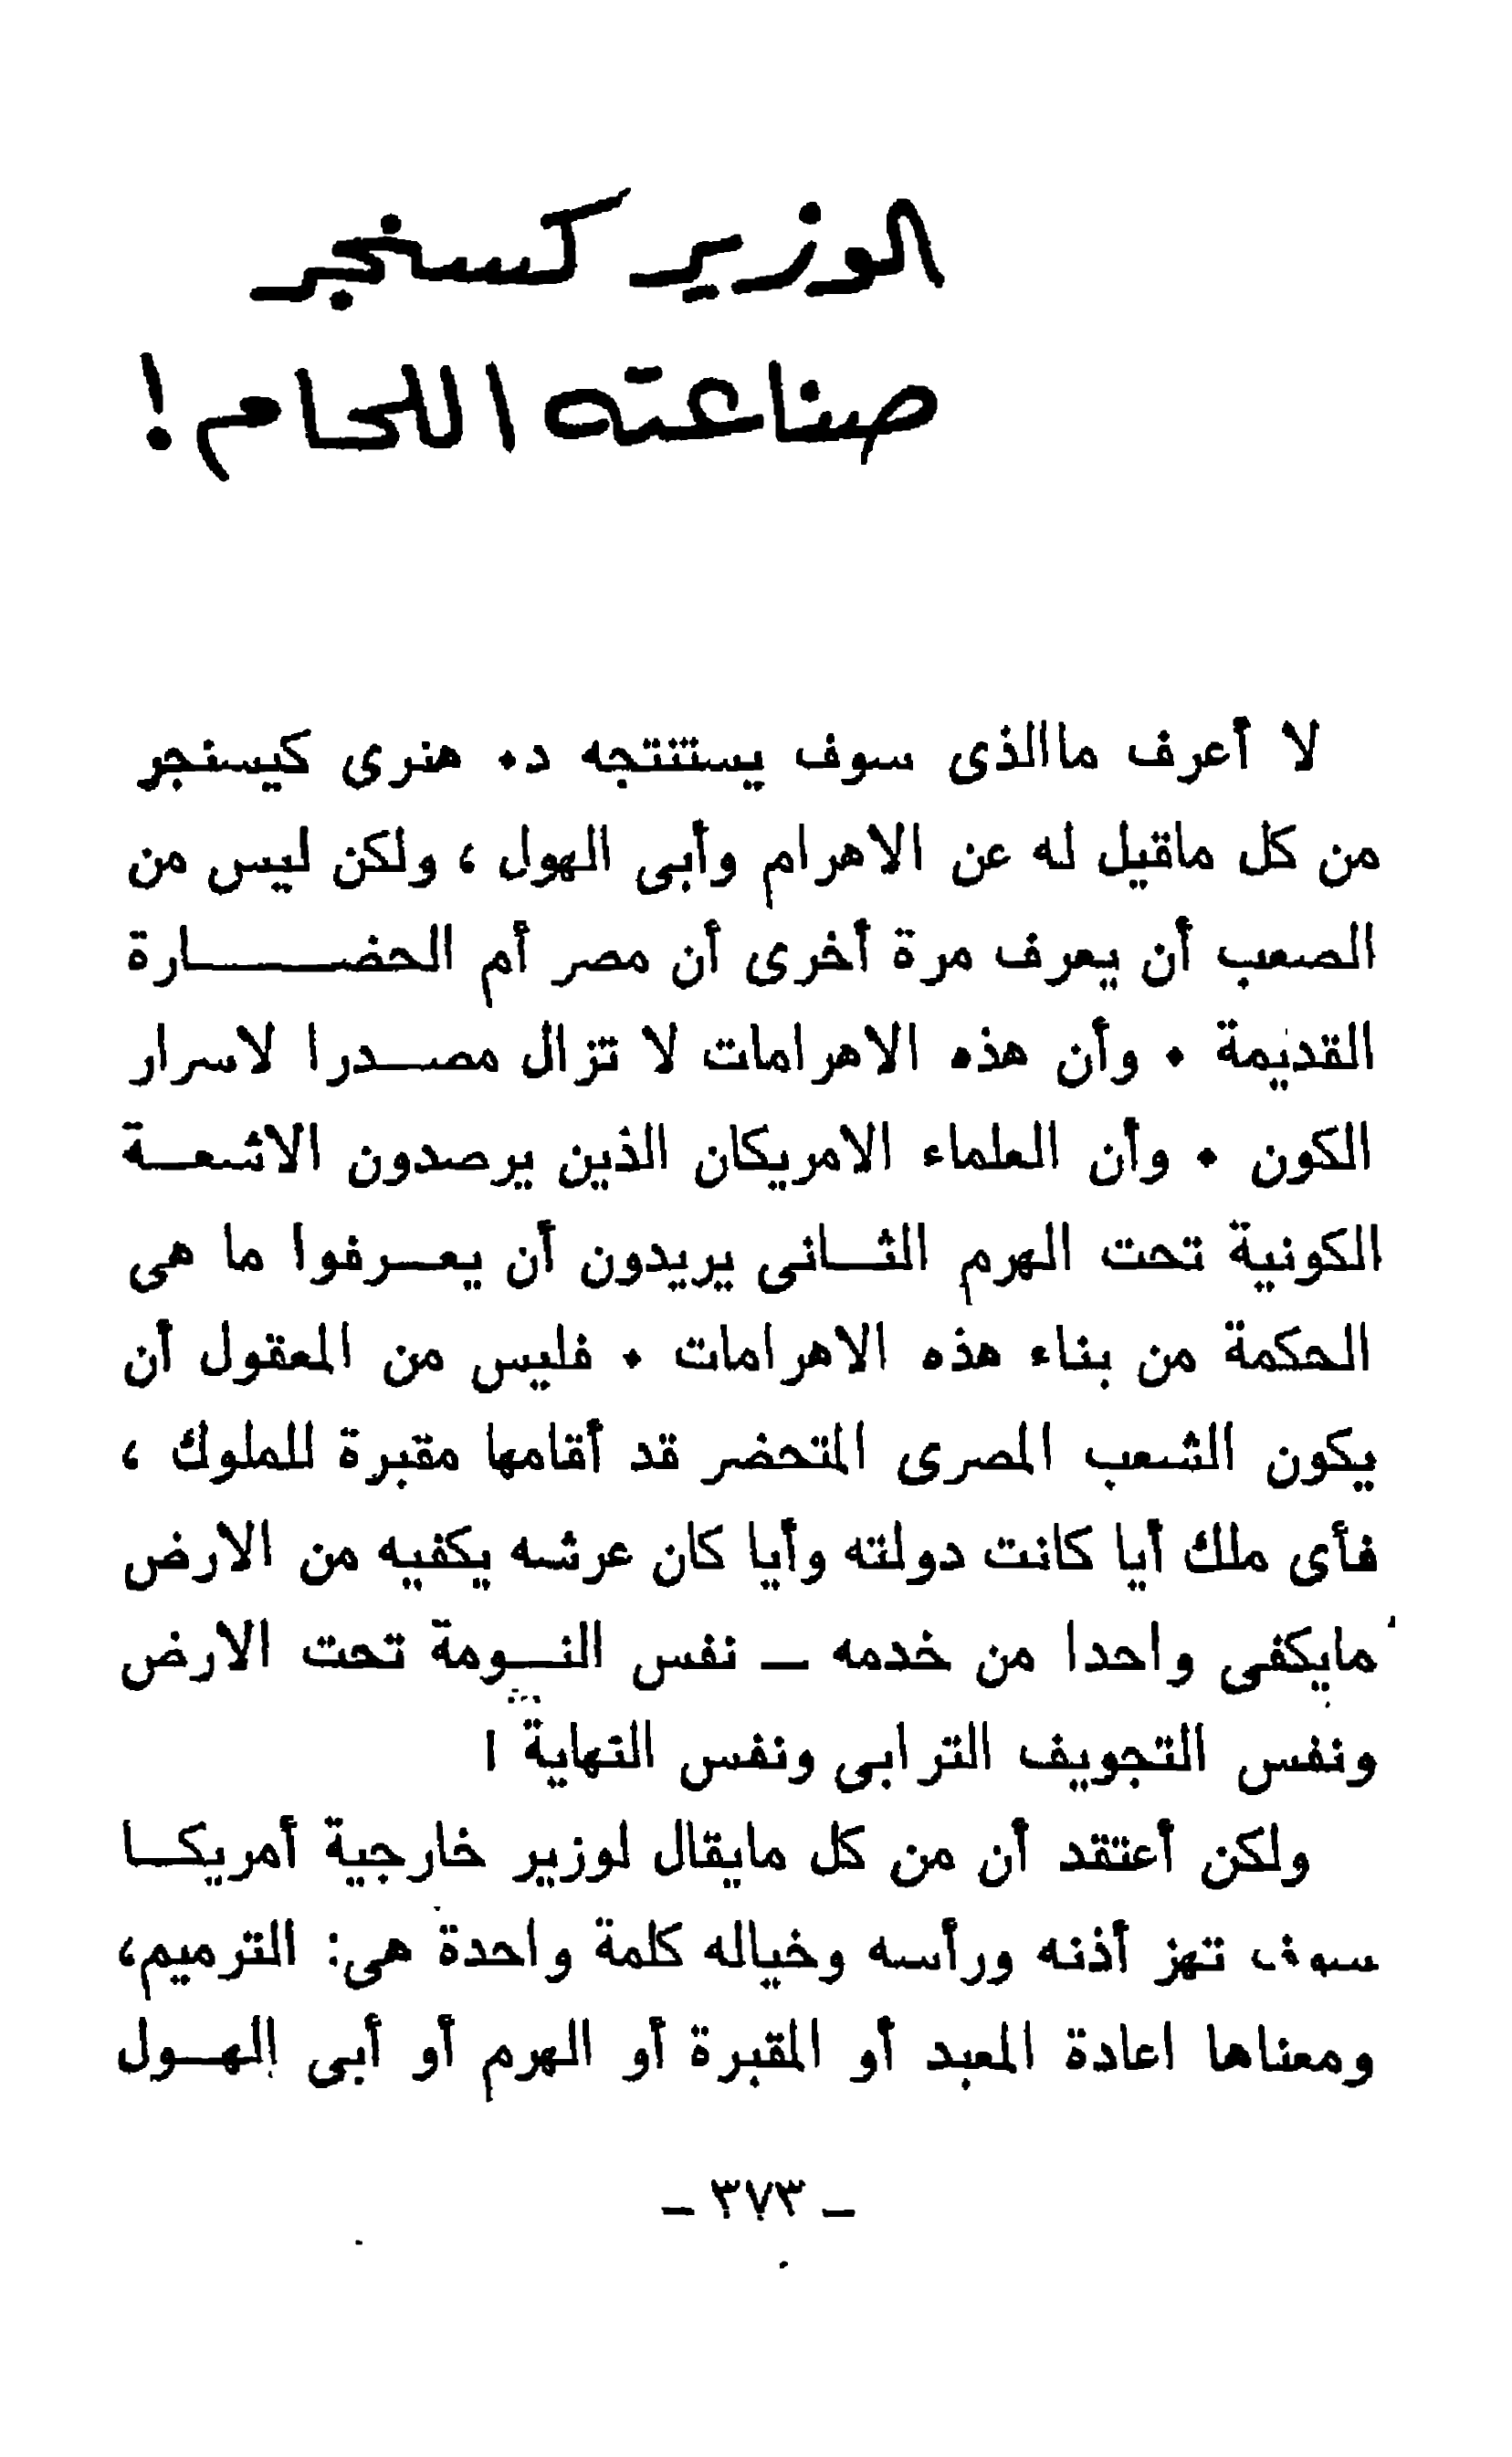 الوزير كسنجر
صناعته اللحام!
لا أعرف ماالذى سوف يستنتجه د. هنرى كيسنجر
من كل ماقيل له عن الاهرام وأبى الهول ، ولكن ليس من
الصعب أن يعرف مرة أخرى أن مصر أم الحضارة
القديمة . وأن هذه الاهرامات لا تزال مصدرا لاسرار
الكون . وأن العلماء الامريكان الذين يرصدون الاشعة
الكونية تحت الهرم الثانى يريدون أن يعرفوا ما هى
الحكمة من بناء هذه الاهرامات . فليس من المعقول أن
يكون الشعب المصرى المتحضر قد أقامها مقبرة للملوك ،
فأى ملك أيا كانت دولته وأيا كان عرشه يكفيه من الارض
مايكفى واحدا من خدمه — نفس النومة تحت الارض
ونفس التجويف الترابى ونفس النهاية !
ولكن أعتقد أن من كل مايقال لوزير خارجية أمريكا
سوف تهز أذنه ورأسه وخياله كلمة واحدة هى: الترميم،
ومعناها اعادة المعبد أو المقبرة أو الهرم أو أبى الهول
— ٣٧٣ —